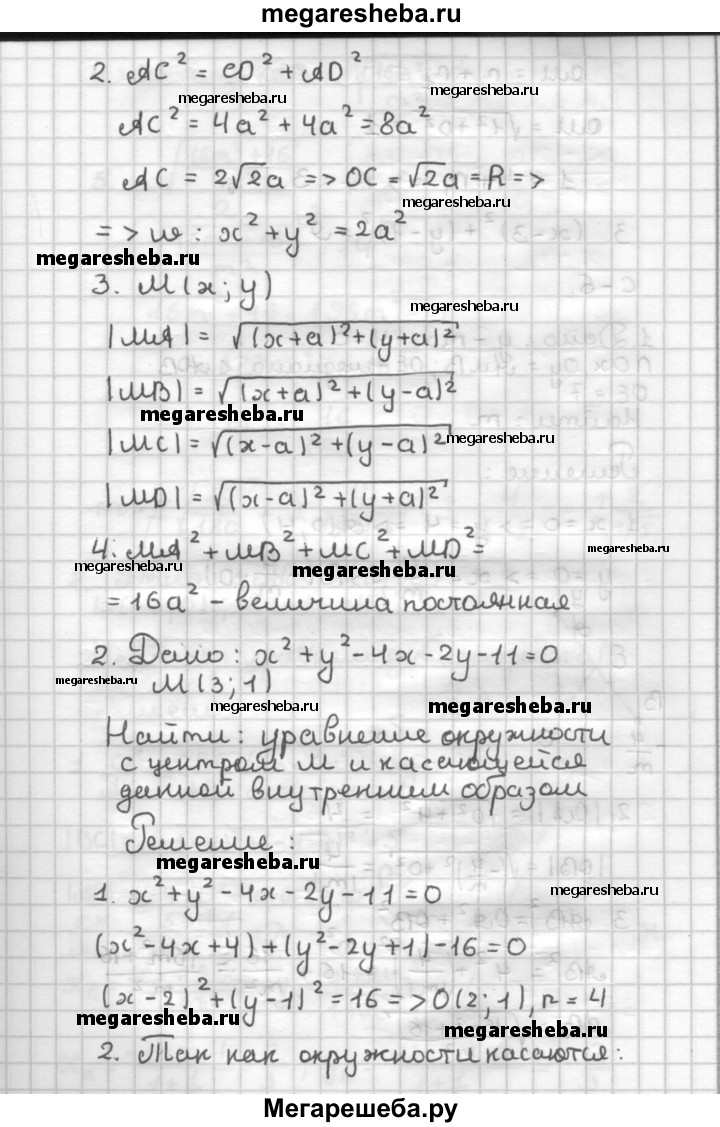 megaresheba.ru
2. AC² = CD² + AD²
megaresheba.ru
megaresheba.ru
AC² = 4a² + 4a² = 8a²
AC = 2√2a => OC = √2a = R =>
megaresheba.ru
=> w : x² + y² = 2a²
megaresheba.ru
3. M(x; y)
megaresheba.ru
|MA| = √(x+a)²+(y+a)²
|MB| = √(x+a)²+(y-a)²
megaresheba.ru
|MC| = √(x-a)²+(y-a)²
megaresheba.ru
|MD| = √(x-a)²+(y+a)²
4. MA² + MB² + MC² + MD² =
megaresheba.ru
megaresheba.ru
megaresheba.ru
= 16a² - величина постоянная
2. Дано: x² + y² - 4x - 2y - 11 = 0
megaresheba.ru
M(3; 1)
megaresheba.ru
megaresheba.ru
Найти: уравнение окружности
с центром M и касающейся
данной внутренним образом
Решение:
megaresheba.ru
1. x² + y² - 4x - 2y - 11 = 0
megaresheba.ru
(x² - 4x + 4) + (y² - 2y + 1) - 16 = 0
(x - 2)² + (y - 1)² = 16 => O(2; 1), r = 4
megaresheba.ru
megaresheba.ru
2. Так как окружности касаются:
Мегарешеба.ру